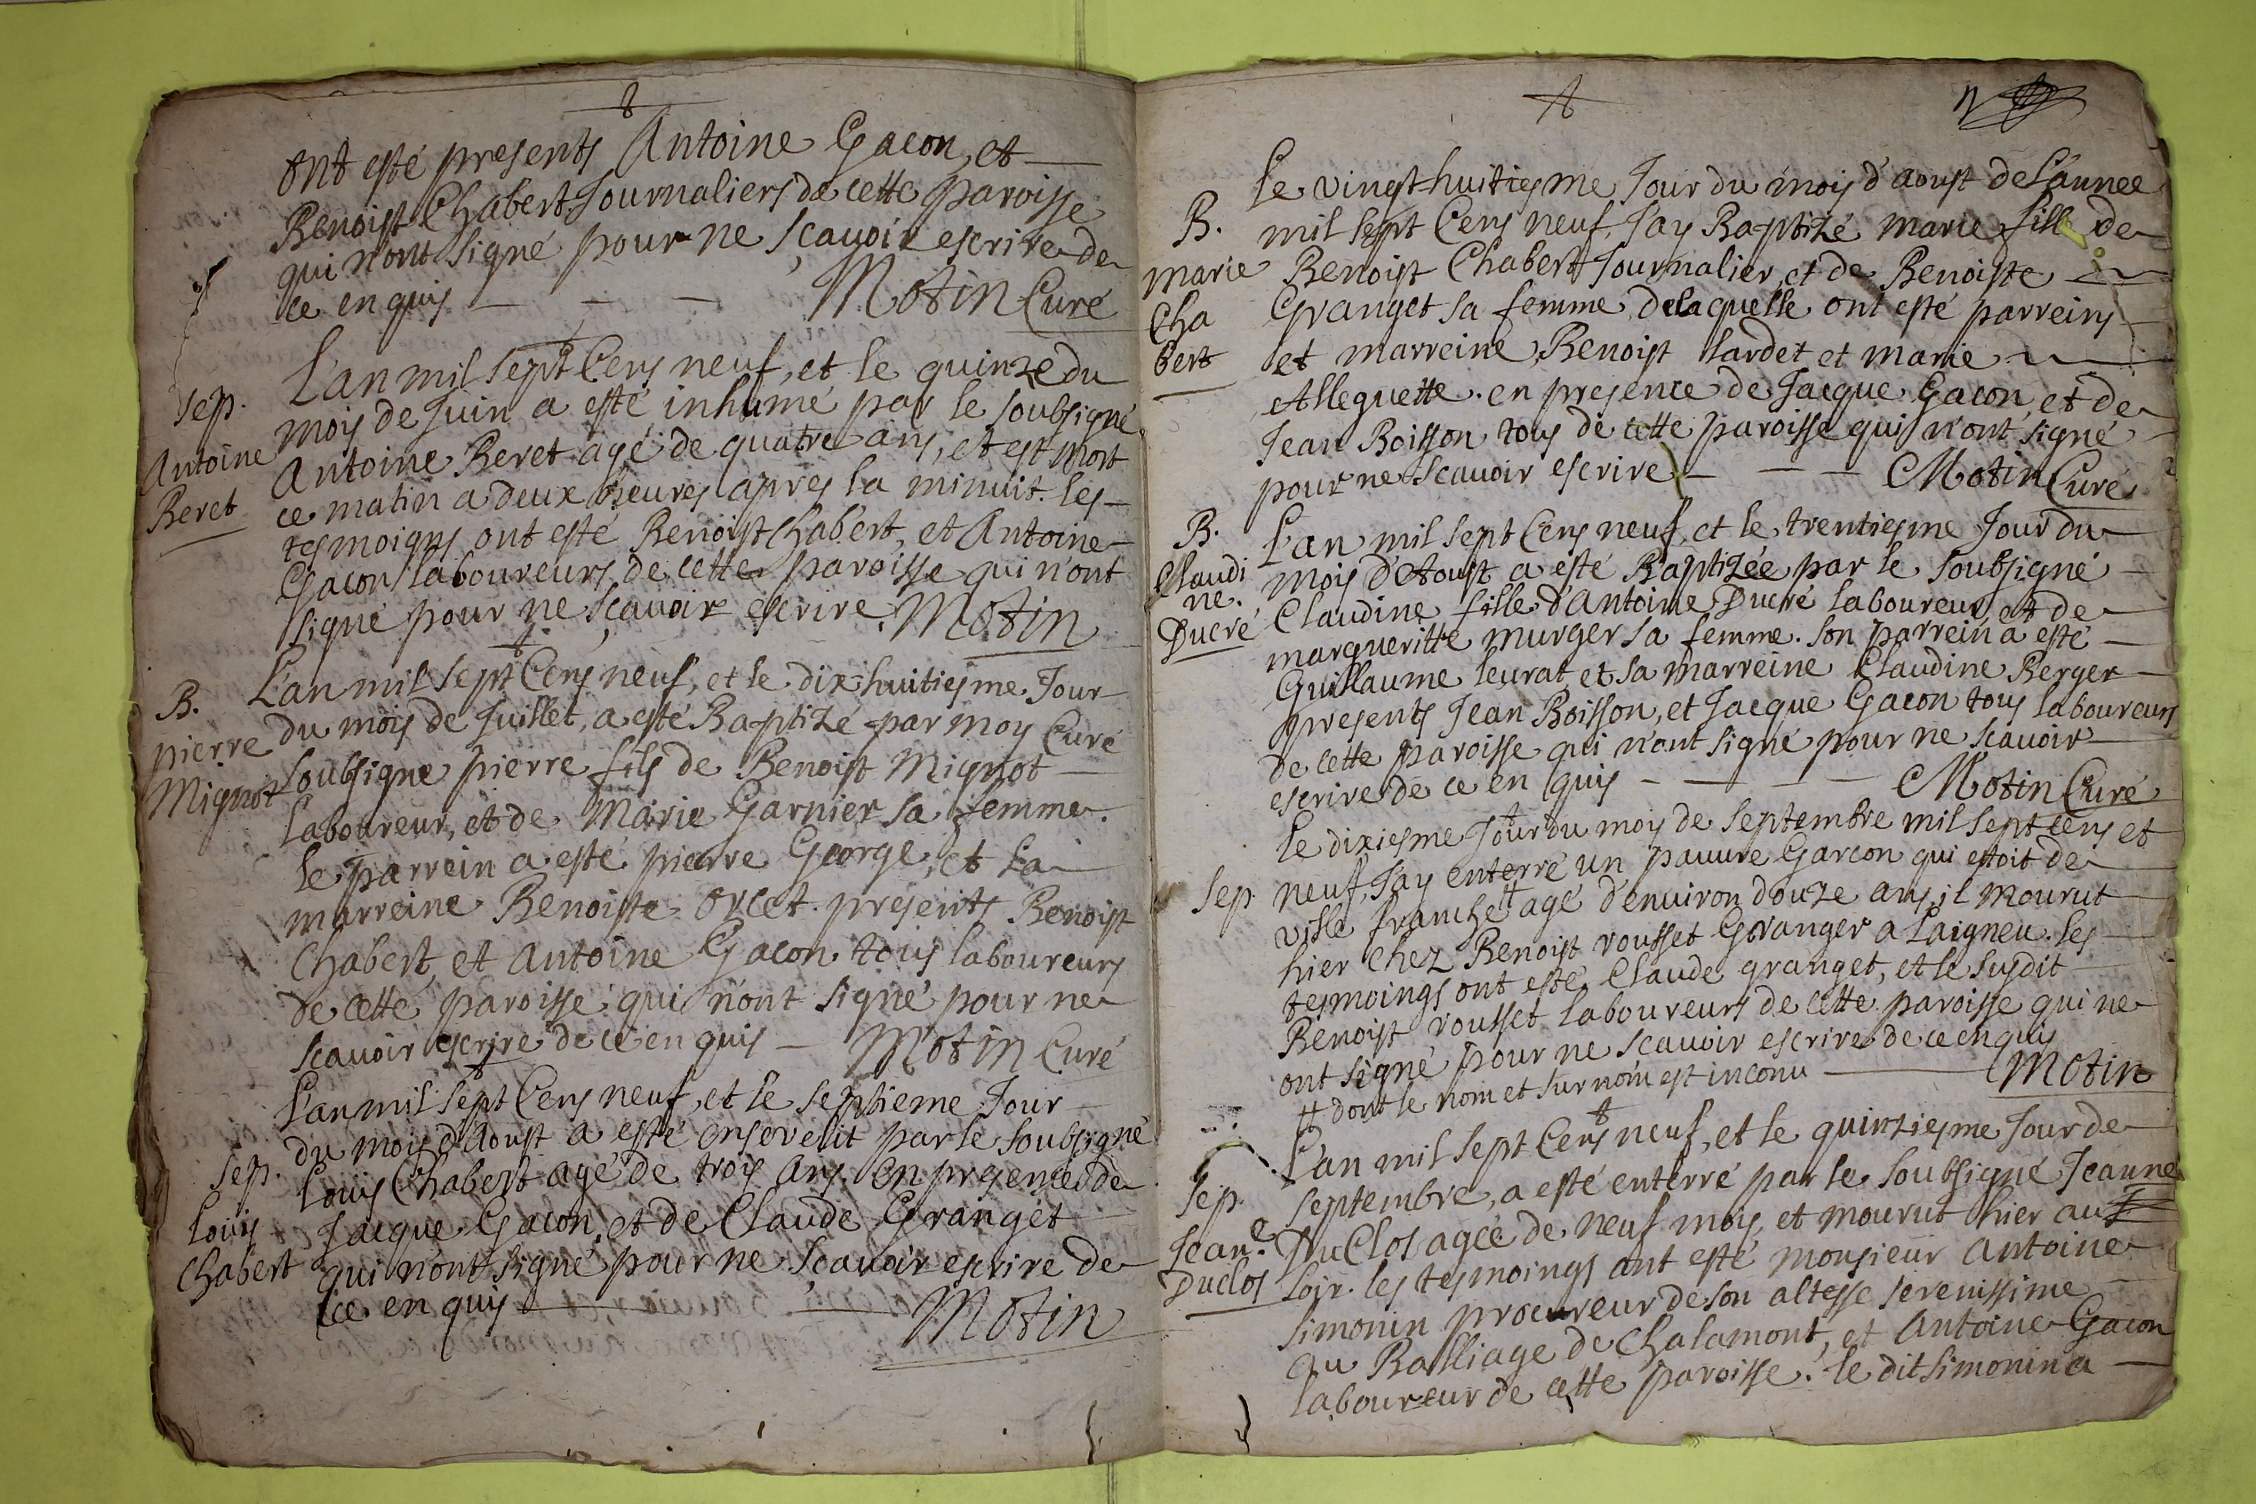 ont esté presents Antoine Gacon, et
Benoist Chabert Journaliers de cette paroisse
qui n'ont signé pour ne sçavoir escrire de
ce enquis Motin Curé
L'an mil sept Cens neuf, et le quinze du
sep. mois de Juin a esté inhumé par le soubsigné
Antoine Antoine Beret agé de quatre ans, et est mort
Beret ce matin a deux heures apres la minuit. les
tesmoigns ont esté Benoist Chabert, et Antoine
Gacon laboureurs de cette paroisse qui n'ont
signé pour ne sçavoir escrire. Motin
L'an mil sept Cens neuf, et le dix huitiesme Jour
B. du mois de Juillet, a esté Baptizé par moy Curé
pierre soubsigne pierre fils de Benoist Mignot
Mignot laboureur, et de Marie Garnier sa femme.
le parrein a esté pierre George, et la
marreine Benoiste Orcet. presents Benoist
Chabert, et Antoine Gacon tous laboureurs
de cette paroisse qui n'ont signé pour ne
scavoir escrire de ce enquis Motin Curé
L'an mil sept Cens neuf, et le septieme Jour
du mois d'Aoust a esté ensevelit par le soubsigné
sep. Louis Chabert agé de trois ans. en presence de
Louis Jacque Gacon, et de Claude Granget
Chabert qui n'ont signé pour ne sçavoir escrire de
ce enquis Motin
le vingt huitiesme Jour du mois d'aoust de L'annee
B. mil sept Cens neuf, Jay Baptizé marie fille de
marie Benoist Chabert Journalier, et de Benoiste
Cha Granget sa femme, delaquelle ont esté parreins
bert et marreine, Benoist Lardet et marie
Alleguette. en presence de Jacque Gacon, et de
Jean Boisson tous de cette paroisse qui n'ont signé
pour ne scavoir escrire Motin Curé
B. L'an mil sept Cens neuf, et le trentiesme Jour du
Claudi mois d'Aoust a esté Baptizée par le soubsigné
ne. Claudine fille d'Antoine Ducré laboureur, et de
Ducré margueritte murger sa femme. son parrein a esté
Guillaume leurat et sa marreine Claudine Berger
presents Jean Boisson, et Jacque Gacon tous laboureurs
de cette paroisse qui n'ont signé pour ne scavoir
escrire de ce en quis Motin Curé
le dixiesme Jour du moys de septembre mil sept cens et
sep. neuf, Jay enterré un pauvre Garcon qui estoit de
ville franche ⁜ agé d'environ douze ans, il mourut
hier chez Benoist rousset Granger a Laigneu. les
tesmoings ont esté Claude granget, et le susdit
Benoist rousset laboureurs de cette paroisse qui ne
ont signé pour ne scavoir escrire de ce enquis
⁜ dont le nom et surnom est inconu Motin
L'an mil sept Cens neuf, et le quinziesme Jour de
Sep. septembre, a esté enterré par le soubsigné Jeanne
Jeane. DuClos agée de neuf mois, et mourut hier au
Duclos soir. les tesmoings ont esté monsieur Antoine
simonin procureur de son altesse serenissime
au Balliage de Chalamont, et Antoine Gacon
laboureur de cette paroisse. le dit simonin a